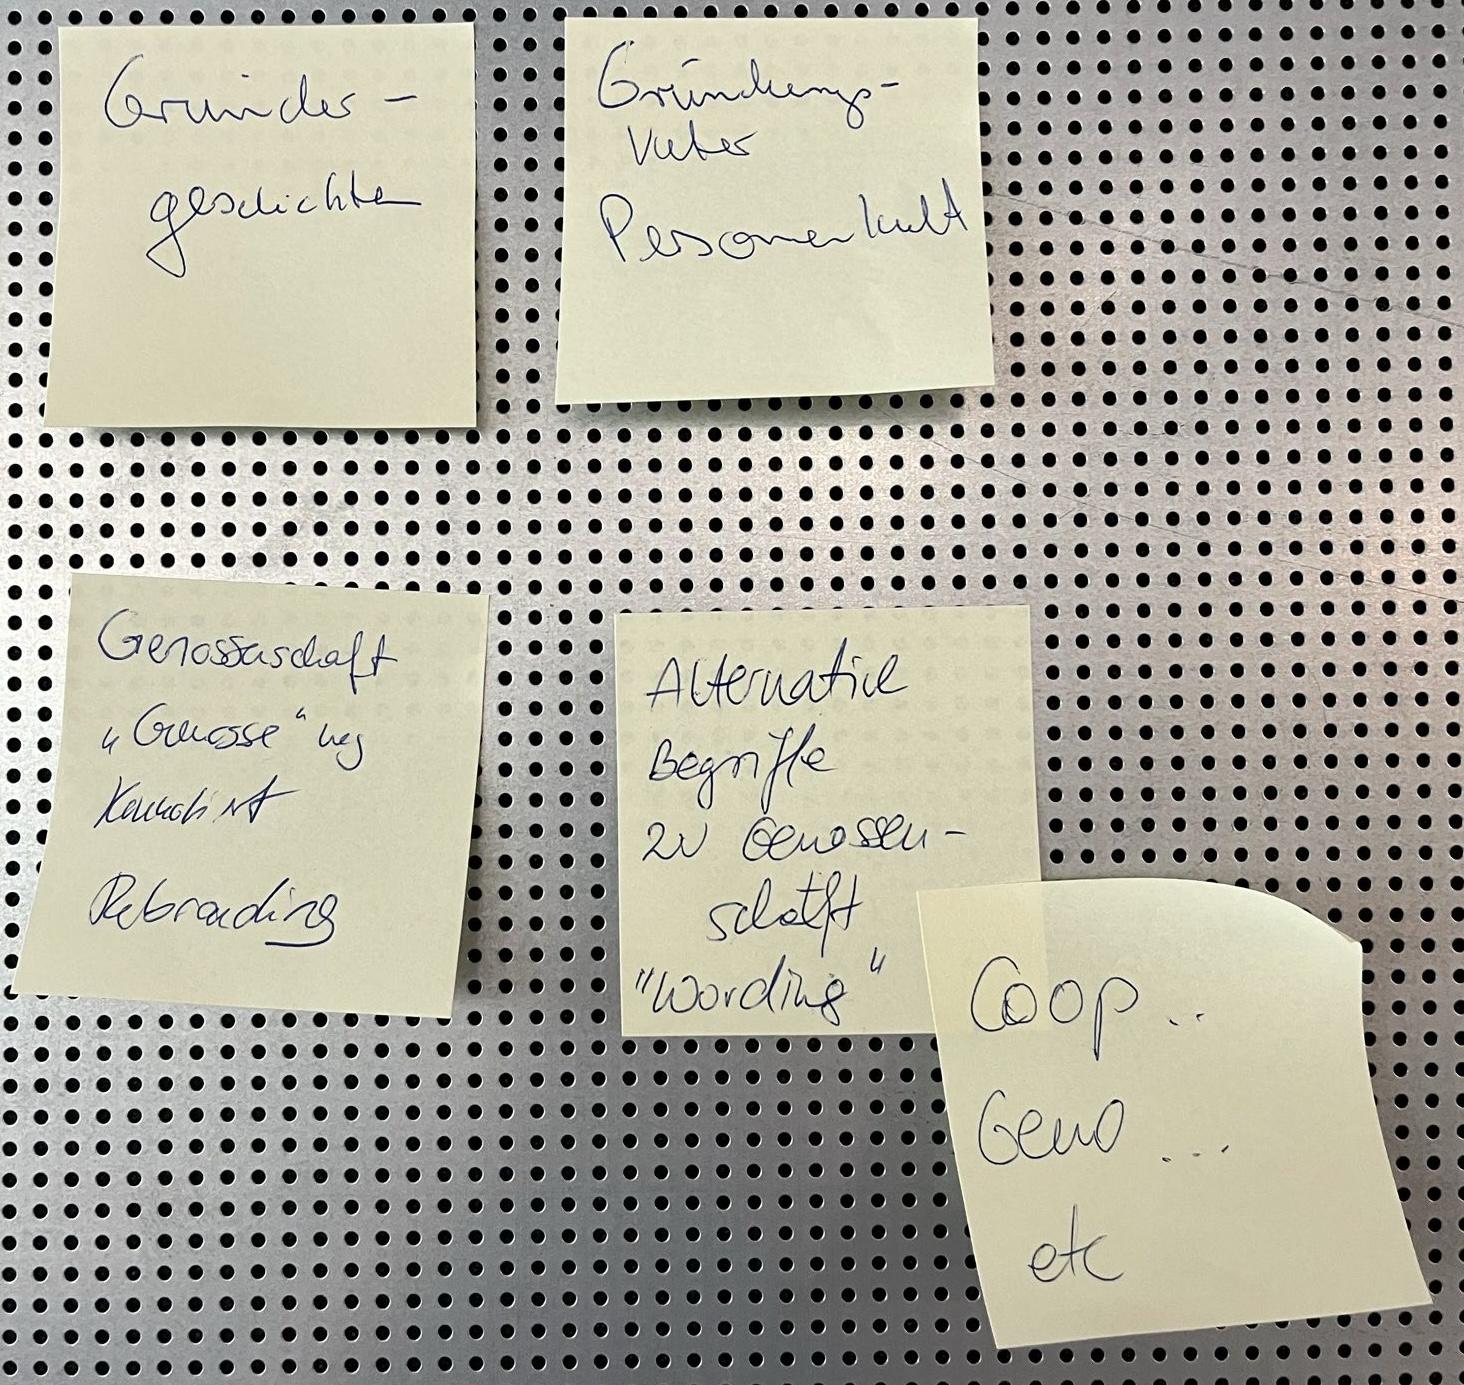 Gründer -
geschichten
Gründungs-
Väter
Personenkult
Genossenschaft
"Genosse" weg
Rebranding
Alternative
Begriffe
zu Genossen-
schaft
"Wording"
Coop..
Geno ...
etc